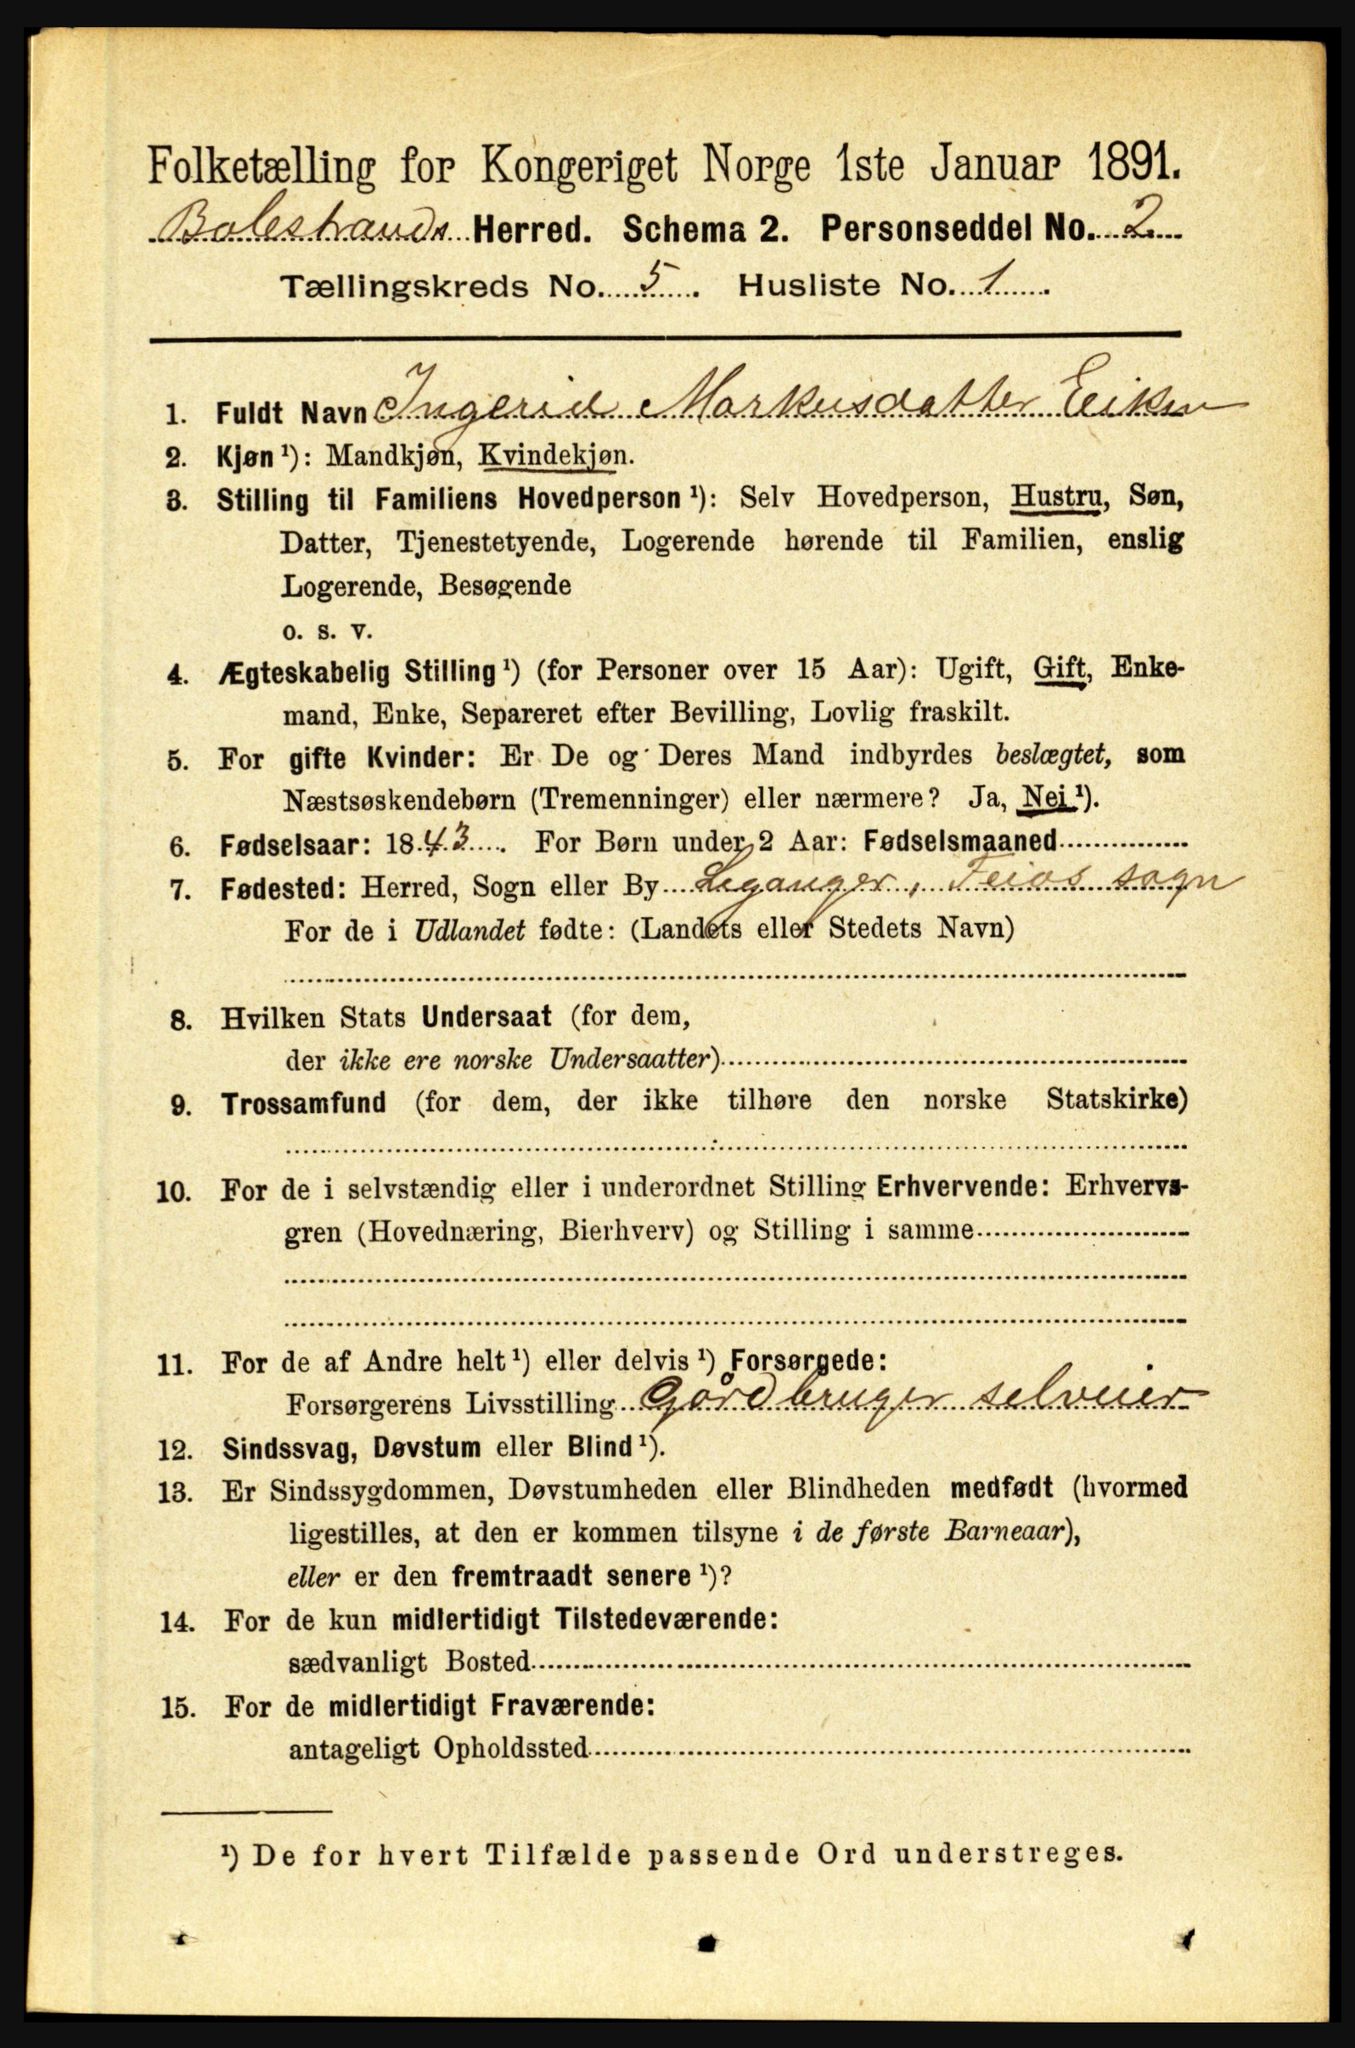 Folketælling for Kongeriget Norge 1ste Januar 1891.
Balestrands Herred. Schema 2. Personseddel No. 2.
Tællingskreds No. 5. Husliste No. 1.
1. Fuldt Navn Ingerid Markusdatter Eiken
2. Kjøn ¹): Mandkjøn, Kvindekjøn.
3. Stilling til Familiens Hovedperson ¹): Selv Hovedperson, Hustru, Søn,
Datter, Tjenestetyende, Logerende hørende til Familien, enslig
Logerende, Besøgende
o. s. v.
4. Ægteskabelig Stilling ¹) (for Personer over 15 Aar): Ugift, Gift, Enke-
mand, Enke, Separeret efter Bevilling, Lovlig fraskilt.
5. For gifte Kvinder: Er De og Deres Mand indbyrdes beslægtet, som
Næstsøskendebørn (Tremenninger) eller nærmere? Ja, Nei ¹).
6. Fødselsaar: 1843. For Børn under 2 Aar: Fødselsmaaned
7. Fødested: Herred, Sogn eller By Leganger, Feios sogn
For de i Udlandet fødte: (Landets eller Stedets Navn)
8. Hvilken Stats Undersaat (for dem,
der ikke ere norske Undersaatter)
9. Trossamfund (for dem, der ikke tilhøre den norske Statskirke)
10. For de i selvstændig eller i underordnet Stilling Erhvervende: Erhvervs-
gren (Hovednæring, Bierhverv) og Stilling i samme
11. For de af Andre helt ¹) eller delvis ¹) Forsørgede:
Forsørgerens Livsstilling Gårdbruger selveier
12. Sindssvag, Døvstum eller Blind ¹).
13. Er Sindssygdommen, Døvstumheden eller Blindheden medfødt (hvormed
ligestilles, at den er kommen tilsyne i de første Barneaar),
eller er den fremtraadt senere ¹)?
14. For de kun midlertidigt Tilstedeværende:
sædvanligt Bosted
15. For de midlertidigt Fraværende:
antageligt Opholdssted
¹) De for hvert Tilfælde passende Ord understreges.